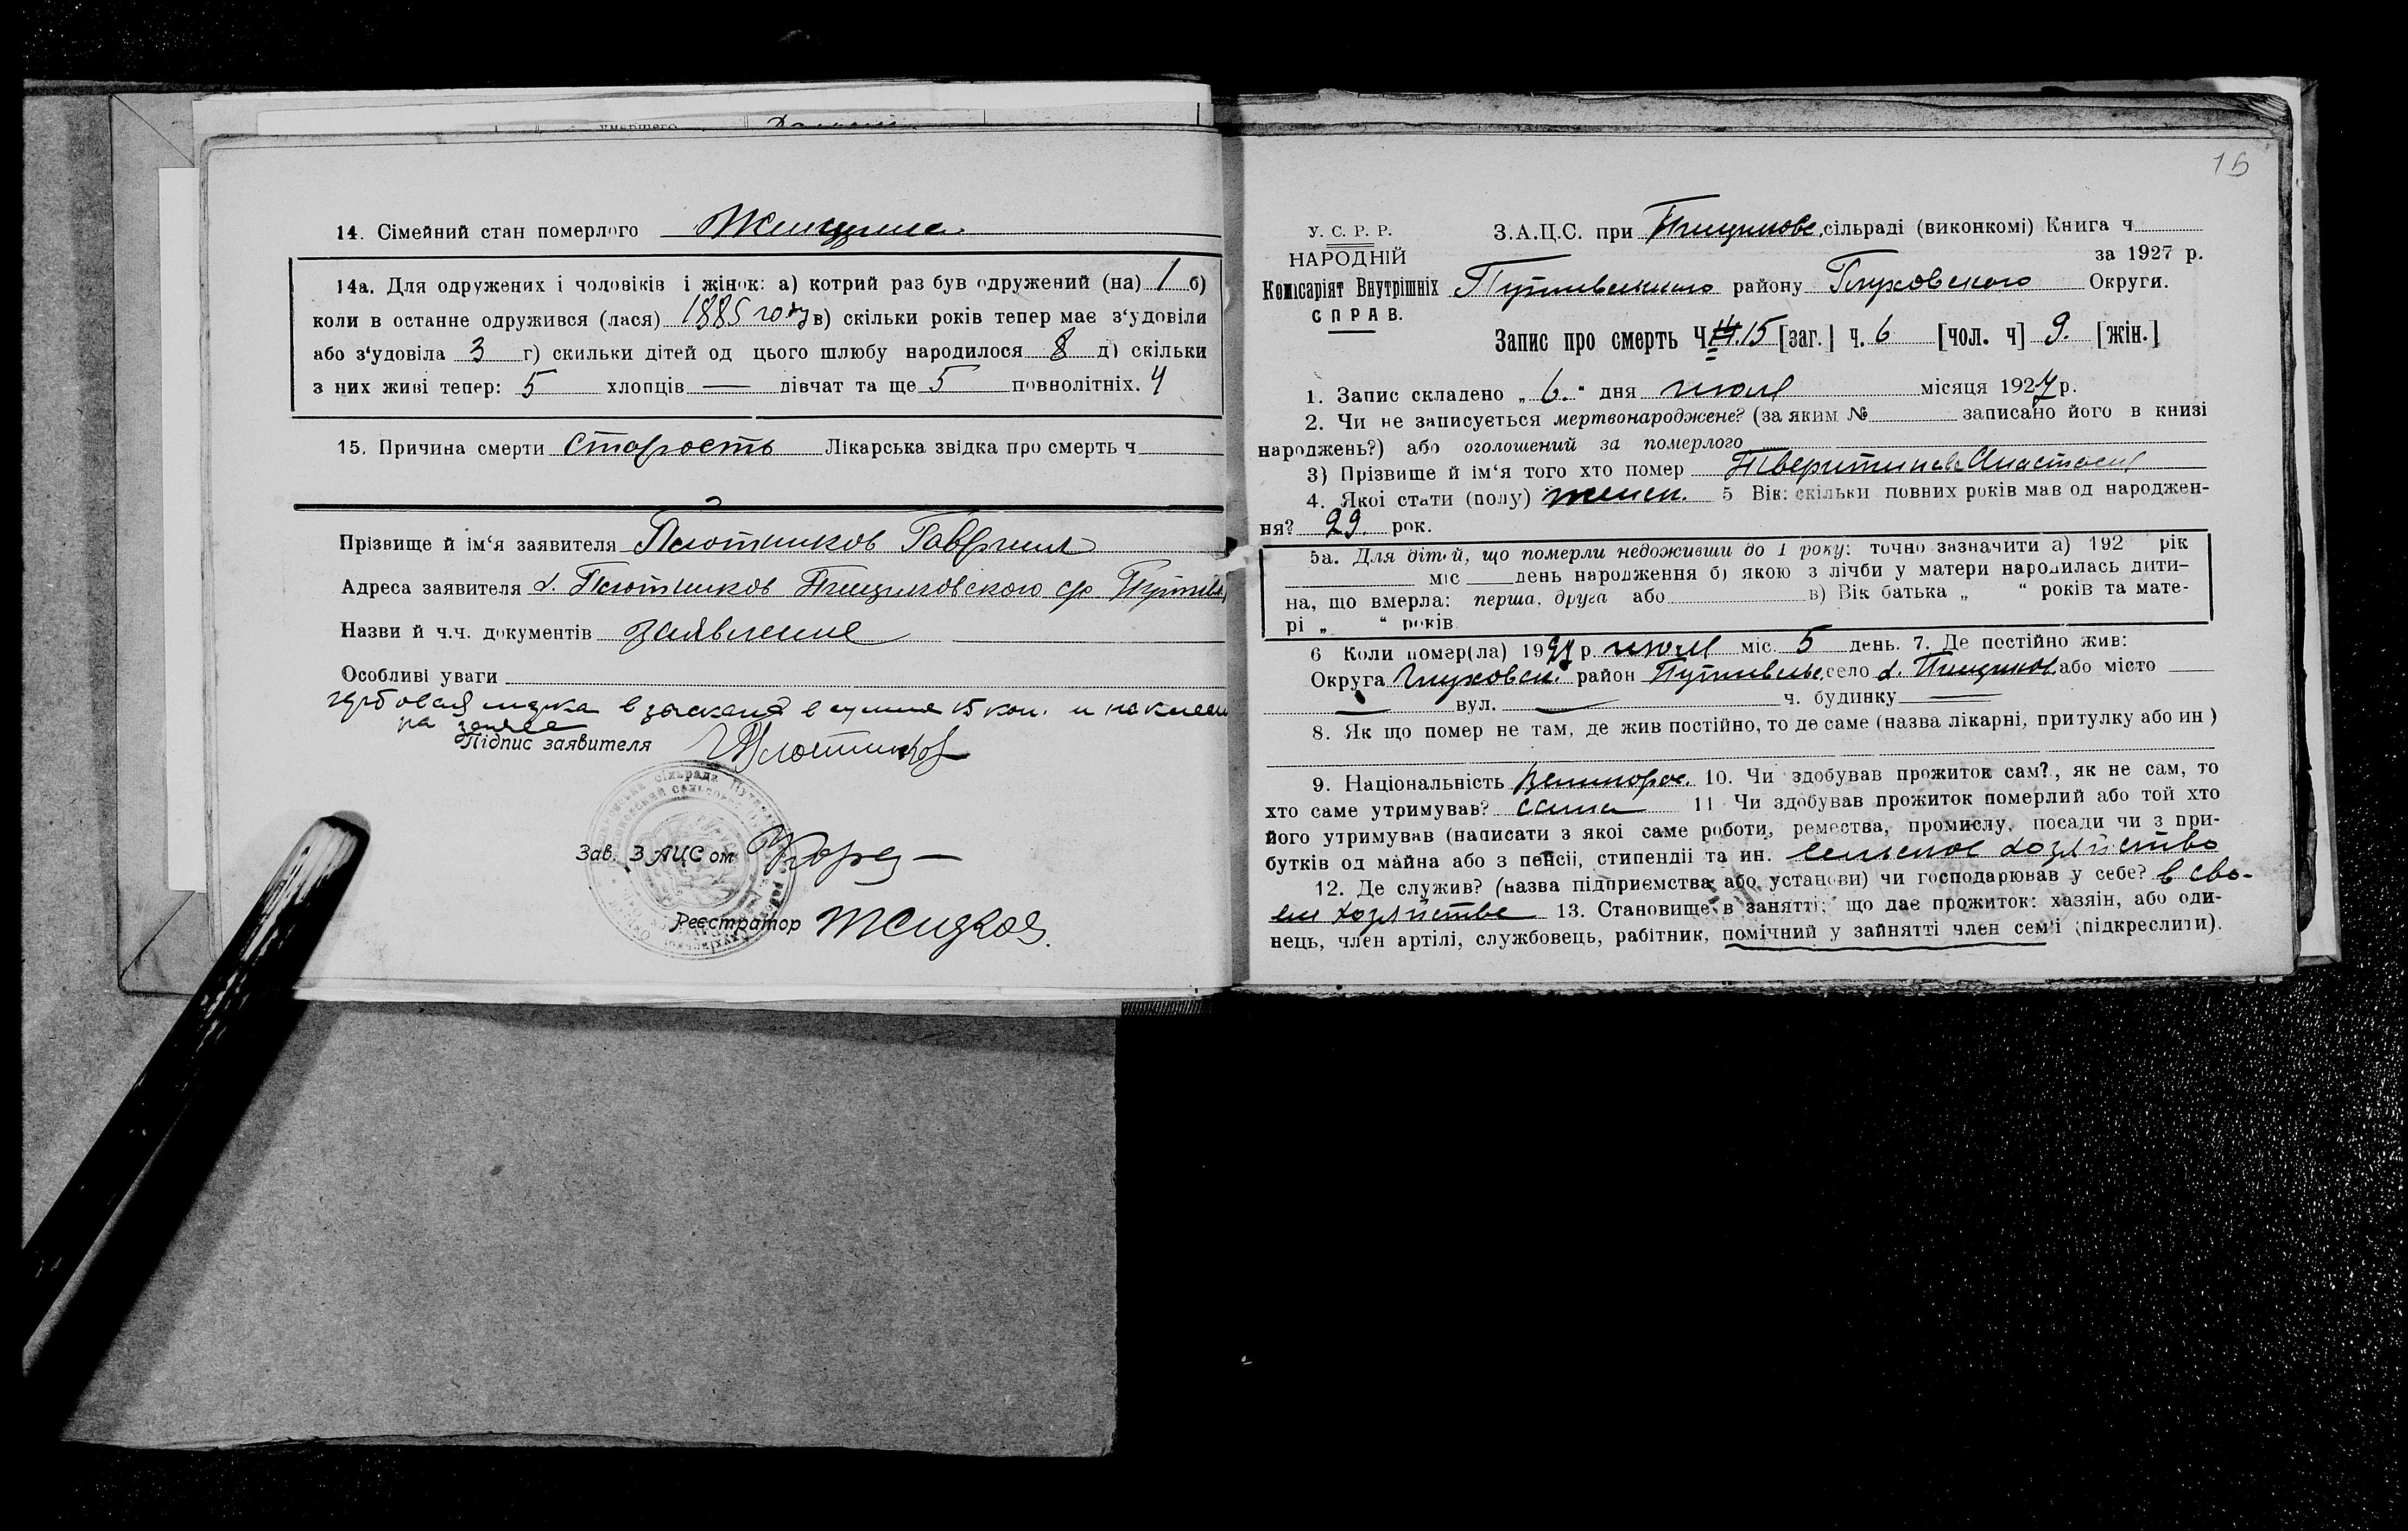 14. Сімейний стан померлого Женщина
14а. Для одружених і чоловіків і жінок: а) котрий раз був одружений (на) 1 б)
коли в останне одружився (лася) 1885 году в) скільки років тепер має з'удовіли
або з'удовіла 3 г) скильки дітей од цього шлюбу народилося 8 д) скільки
з них живі тепер: 5 хлопців — дівчат та ще 5 повнолітніх. 4
15. Причина смерти Старость Лікарська звідка про смерть ч
Прізвище й ім'я заявителя Плотников Гавриил
Адреса заявителя д. Плотников Пищиковского с/р Путивл
Назви й ч.ч. документів заявление
Особливі уваги
гербовая марка взыскана в сумме 15 коп. и наклеен
на
Підпис заявителя Плотников
Зав. ЗАЦСом
Реєстратор Жидков
15
У. С. Р. Р.
НАРОДНІЙ
Комісаріят Внутрішніх
СПРАВ.
З.А.Ц.С. при Пищиковс. сільраді (виконкомі) Книга ч
за 1927 р.
Путивльского району Глуховского Округи.
Запис про смерть Ч 14. 15 [заг.] ч. 6 [чол. ч] 9. [жін.]
1. Запис складено „ 6. “ дня июля місяця 1927 р.
2. Чи не записується мертвонароджене? (за яким № записано його в книзі
народжень?) або оголошений за померлого
3) Прізвище й ім'я того хто помер Тверитинова Анастасия
4. Якої стати (полу) женск. 5 Вік: скільки повних років мав од народжен-
ня? 29. рок.
5а. Для дітей, що померли недоживши до 1 року: точно зазначити а) 192 рік
міс день народження б) якою з лічби у матери народилась дити-
на, що вмерла: перша, друга або в) Вік батька „ “ років та мате-
рі „ “ років
6 Коли помер(ла) 1927 р. июля міс. 5 день. 7. Де постійно жив:
Округа Глуховск. район Путивльс. село д. Пищиков або місто
вул. ч. будинку
8. Як що помер не там, де жив постійно, то де саме (назва лікарні, притулку або ин)
9. Національність Великорос. 10. Чи здобував прожиток сам?, як не сам, то
хто саме утримував? сама 11 Чи здобував прожиток померлий або той хто
його утримував (написати з якої саме роботи, ремества, промислу, посади чи з при-
бутків од майна або з пенсії, стипендії та ин. сельское хозяйство
12. Де служив? (назва підприємства або установи) чи господарював у себе? в сво-
ем хозяйстве 13. Становище в занятті; що дає прожиток: хазяін, або оди-
нець, член артілі, службовець, рабітник, помічний у зайнятті член сем'ї (підкреслити).